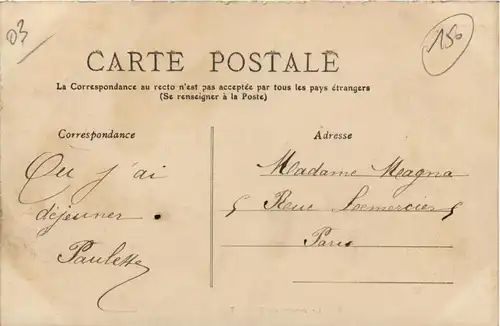 03
150
CARTE POSTALE
La Correspondance au recto n'est pas acceptée par tous les pays étrangers
(Se renseigner à la Poste)
Correspondance
Où j'ai
déjeuner.
Paulette
Adresse
Madame Magna
5 Rue 5
Paris